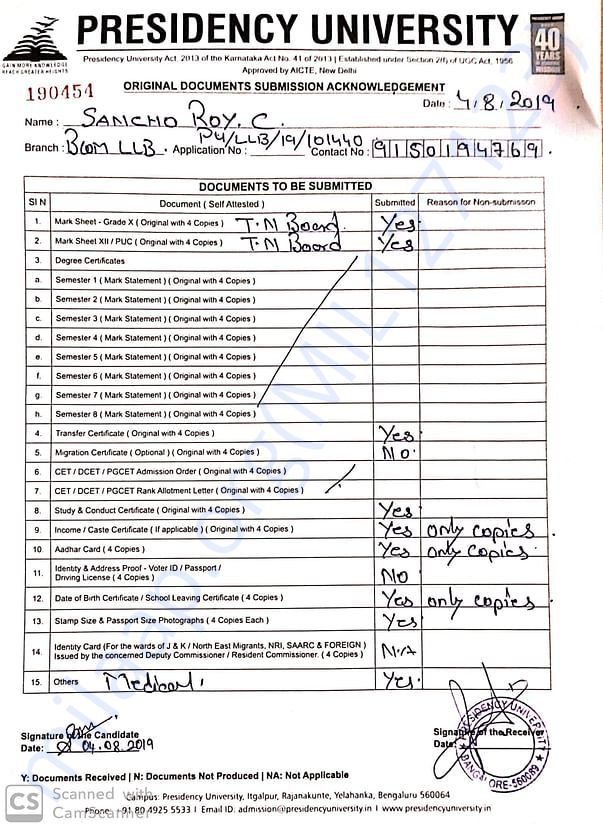 GAIN MORE KNOWLEDGE
REACH GREATER HEIGHTS
PRESIDENCY UNIVERSITY
40
YEARS
Presidency University Act, 2013 of the Karnataka Act No. 41 of 2013 | Established under Section 2(f) of UGC Act, 1956
Approved by AICTE, New Delhi
190454
ORIGINAL DOCUMENTS SUBMISSION ACKNOWLEDGEMENT
Date : 4/8/2019
Name : SANCHO ROY. C.
Branch : BCOM LLB. Application No : PU/LLB/19/101440 Contact No : 9150194769
DOCUMENTS TO BE SUBMITTED
Sl N Document ( Self Attested ) Submitted Reason for Non-submisson
1. Mark Sheet - Grade X ( Original with 4 Copies ) T.N Board. Yes.
2. Mark Sheet XII / PUC ( Original with 4 Copies ) T.N Board Yes
3. Degree Certificates
a. Semester 1 ( Mark Statement ) ( Original with 4 Copies )
b. Semester 2 ( Mark Statement ) ( Original with 4 Copies )
c. Semester 3 ( Mark Statement ) ( Original with 4 Copies )
d. Semester 4 ( Mark Statement ) ( Original with 4 Copies )
e. Semester 5 ( Mark Statement ) ( Original with 4 Copies )
f. Semester 6 ( Mark Statement ) ( Original with 4 Copies )
g. Semester 7 ( Mark Statement ) ( Original with 4 Copies )
h. Semester 8 ( Mark Statement ) ( Original with 4 Copies )
4. Transfer Certificate ( Original with 4 Copies ) Yes.
5. Migration Certificate ( Optional ) ( Original with 4 Copies ) No.
6. CET / DCET / PGCET Admission Order ( Original with 4 Copies )
7. CET / DCET / PGCET Rank Allotment Letter ( Original with 4 Copies )
8. Study & Conduct Certificate ( Original with 4 Copies ) Yes
9. Income / Caste Certificate ( If applicable ) ( Original with 4 Copies ) Yes only copies.
10. Aadhar Card ( 4 Copies ) Yes only copies.
11. Identity & Address Proof - Voter ID / Passport /
Driving License ( 4 Copies ) No
12. Date of Birth Certificate / School Leaving Certificate ( 4 Copies ) Yes only copies.
13. Stamp Size & Passport Size Photographs ( 4 Copies Each ) Yes
14. Identity Card (For the wards of J & K / North East Migrants, NRI, SAARC & FOREIGN )
Issued by the concerned Deputy Commissioner / Resident Commissioner. ( 4 Copies ) N.A
15. Others Yes.
Signature of the Candidate
Date: 04.08.2019
Signature of the Receiver
Date:
PRESIDENCY UNIVERSITY
BANGALORE-560089
Y: Documents Received | N: Documents Not Produced | NA: Not Applicable
Campus: Presidency University, Itgalpur, Rajanakunte, Yelahanka, Bengaluru 560064
Phone: +91 80 4925 5533 I Email ID: admission@presidencyuniversity.in I www.presidencyuniversity.in
CS Scanned with
CamScanner
milaap.org(MIL127122)